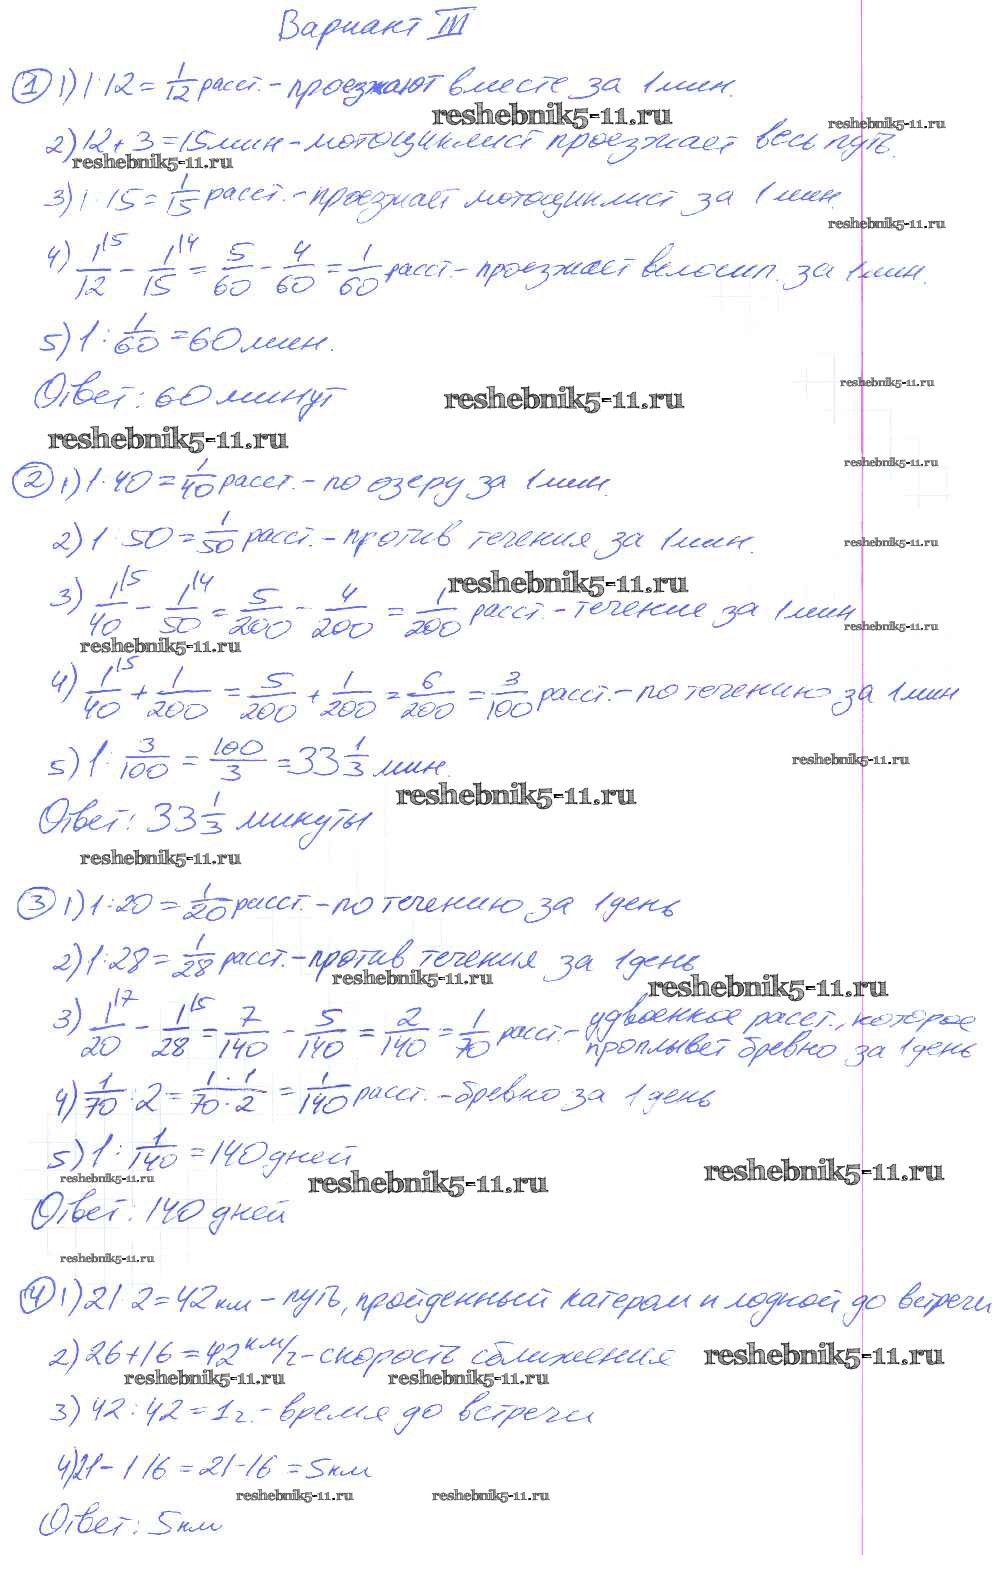 Вариант III
1 1) 1:12 = 1/12 расст. - проезжают вместе за 1 мин.
reshebnik5-11.ru
reshebnik5-11.ru
2) 12 + 3 = 15 мин - мотоциклист проезжает весь путь.
reshebnik5-11.ru
3) 1:15 = 1/15 расст. - проезжает мотоциклист за 1 мин.
reshebnik5-11.ru
4) 1\5/12 - 1\4/15 = 5/60 - 4/60 = 1/60 расст. - проезжает велосип. за 1 мин.
5) 1 : 1/60 = 60 мин.
reshebnik5-11.ru
Ответ: 60 минут
reshebnik5-11.ru
reshebnik5-11.ru
reshebnik5-11.ru
2 1) 1:40 = 1/40 расст. - по озеру за 1 мин.
2) 1:50 = 1/50 расст. - против течения за 1 мин.
reshebnik5-11.ru
reshebnik5-11.ru
3) 1\5/40 - 1\4/50 = 5/200 - 4/200 = 1/200 расст. - течение за 1 мин
reshebnik5-11.ru
reshebnik5-11.ru
4) 1\5/40 + 1/200 = 5/200 + 1/200 = 6/200 = 3/100 расст. - по течению за 1 мин
5) 1 : 3/100 = 100/3 = 33 1/3 мин.
reshebnik5-11.ru
reshebnik5-11.ru
Ответ: 33 1/3 минуты
reshebnik5-11.ru
3 1) 1:20 = 1/20 расст. - по течению за 1 день
2) 1:28 = 1/28 расст. - против течения за 1 день
reshebnik5-11.ru
reshebnik5-11.ru
3) 1\7/20 - 1\5/28 = 7/140 - 5/140 = 2/140 = 1/70 расст. - удвоенное расст., которое
проплывет бревно за 1 день
4) 1/70 : 2 = 1·1/70·2 = 1/140 расст. - бревно за 1 день
5) 1 : 1/140 = 140 дней
reshebnik5-11.ru
reshebnik5-11.ru
reshebnik5-11.ru
Ответ: 140 дней
reshebnik5-11.ru
4 1) 21·2 = 42 км - путь, пройденный катером и лодкой до встречи
2) 26 + 16 = 42 км/ч - скорость сближения
reshebnik5-11.ru
reshebnik5-11.ru
reshebnik5-11.ru
3) 42:42 = 1 ч. - время до встречи
4) 21 - 1·16 = 21 - 16 = 5 км
reshebnik5-11.ru
reshebnik5-11.ru
Ответ: 5 км